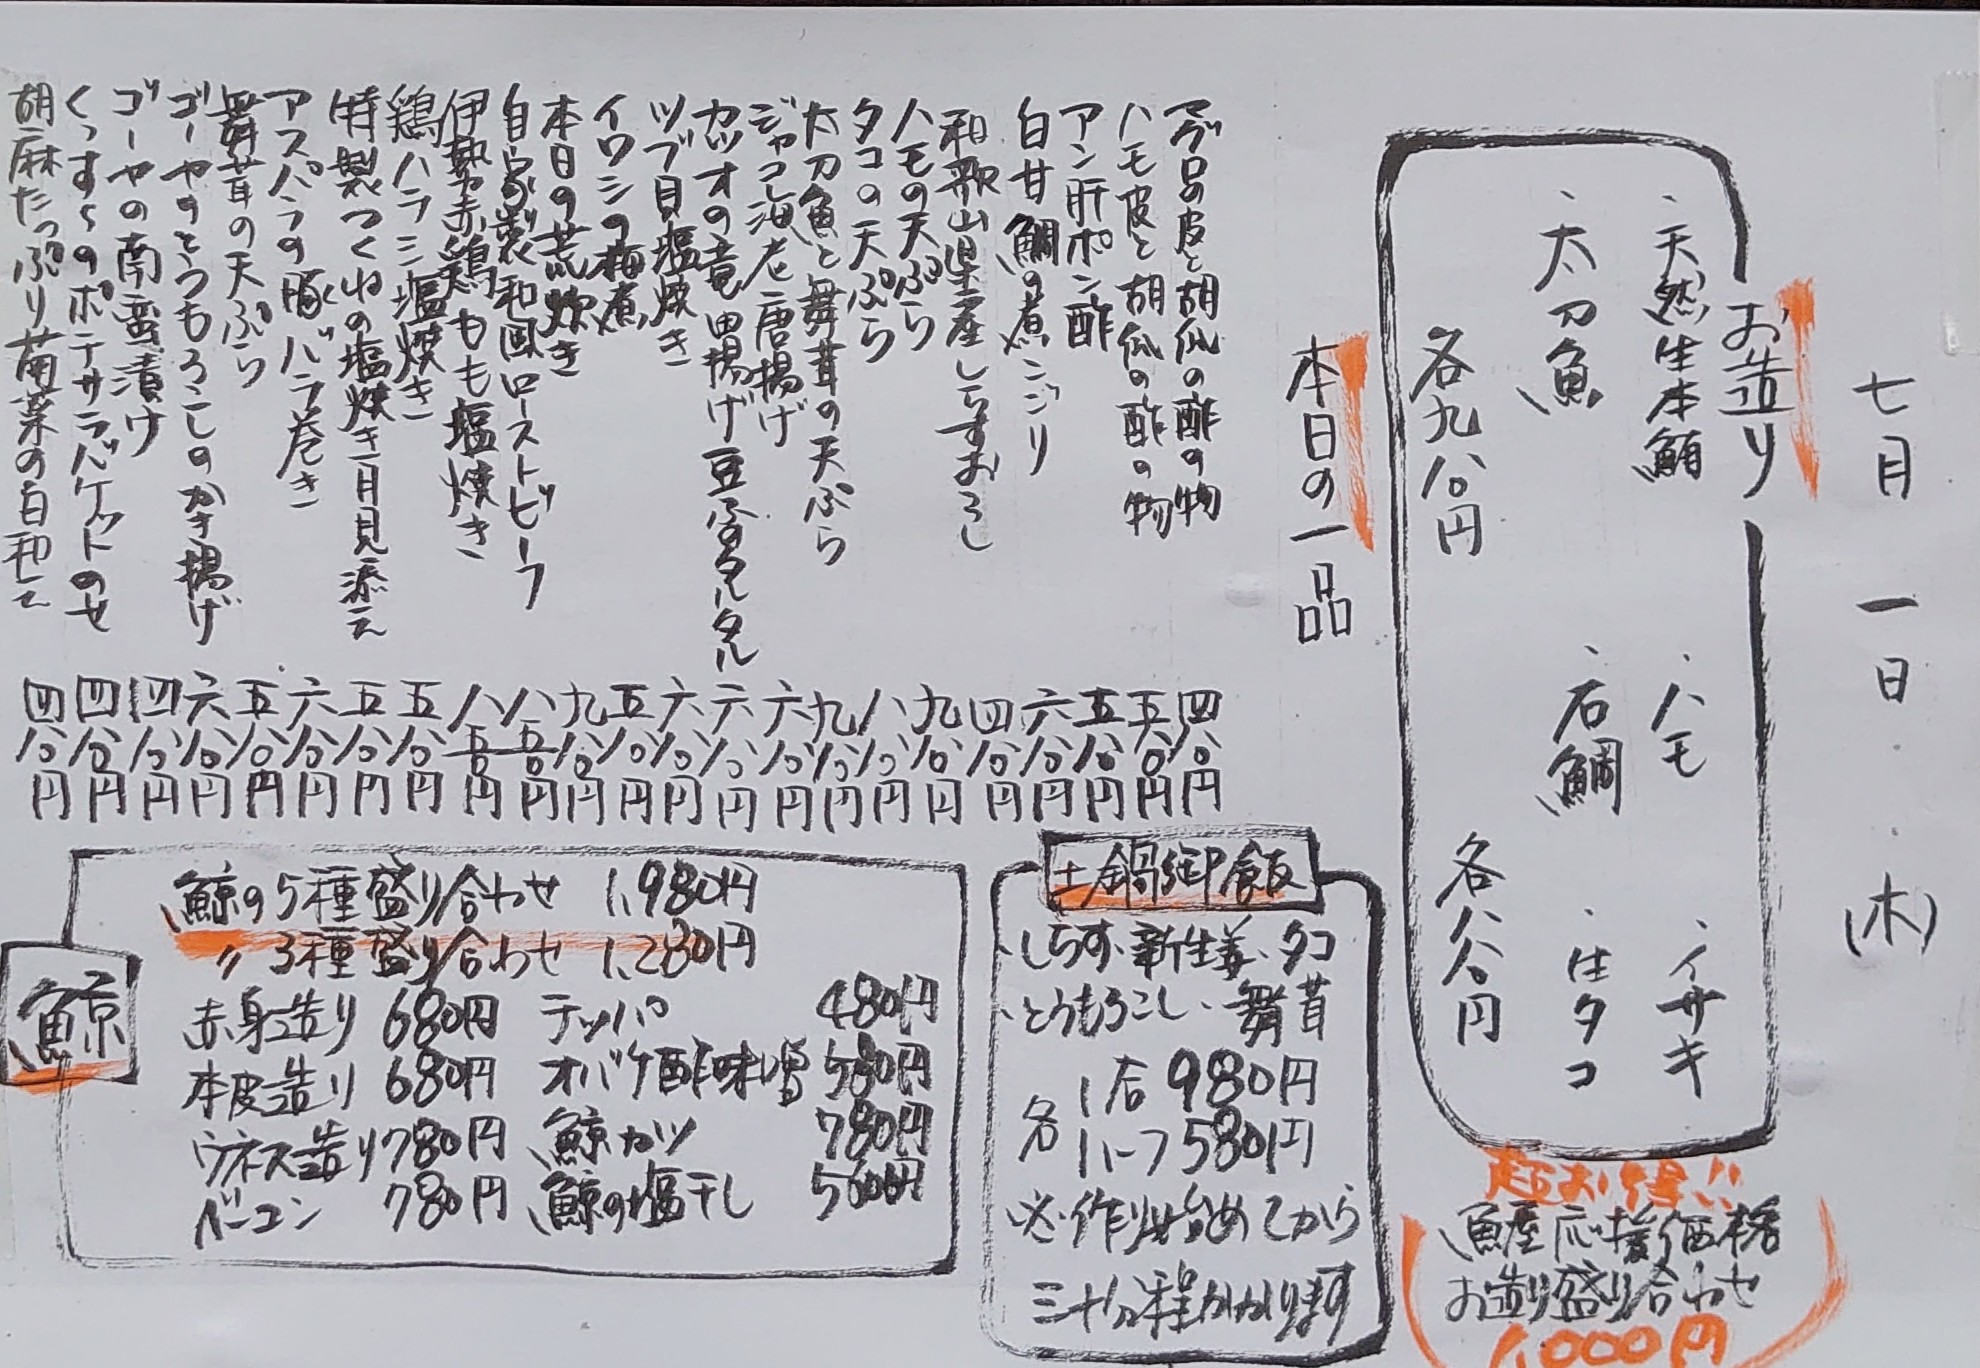 七月一日(木)
お造り
・天然生本鮪
・ハモ
・イサキ
・太刀魚
・石鯛
・生タコ
各九八〇円
各八八〇円
超お得!!
魚屋応援価格
お造り盛り合わせ
1,000円
本日の一品
マグロの皮と胡瓜の酢の物 四八〇円
ハモ皮と胡瓜の酢の物 五八〇円
アン肝ポン酢 五八〇円
白甘鯛の煮こごり 六八〇円
和歌山県産しらすおろし 四八〇円
ハモの天ぷら 九八〇円
タコの天ぷら 八八〇円
太刀魚と舞茸の天ぷら 九八〇円
ジャコ海老唐揚げ 六八〇円
カツオの竜田揚げ豆ふのタルタル 六八〇円
ツブ貝塩焼き 六八〇円
イワシの梅煮 五八〇円
本日の荒炊き 九八〇円
自家製和風ローストビーフ 八五〇円
伊勢赤鶏もも塩焼き 八五〇円
鶏ハラミ塩焼き 五八〇円
特製つくねの塩焼き月見添え 五八〇円
アスパラの豚バラ巻き 六八〇円
舞茸の天ぷら 五八〇円
ゴーヤのとうもろこしのかき揚げ 六八〇円
ゴーヤの南蛮漬け 四八〇円
くっすらのポテサラバケットのせ 四八〇円
胡麻たっぷり菊菜の白和え 四八〇円
土鍋御飯
・しらす・新生姜・タコ
・とうもろこし・舞茸
各
1合980円
ハーフ580円
※作り始めてから
三十分程かかります
鯨
鯨の5種盛り合わせ 1,980円
〃 3種盛り合わせ 1,280円
赤身造り 680円 テッパ 480円
本皮造り 680円 オバケ酢味噌 580円
ウネス造り 780円 鯨カツ 780円
ベーコン 780円 鯨の塩干し 560円